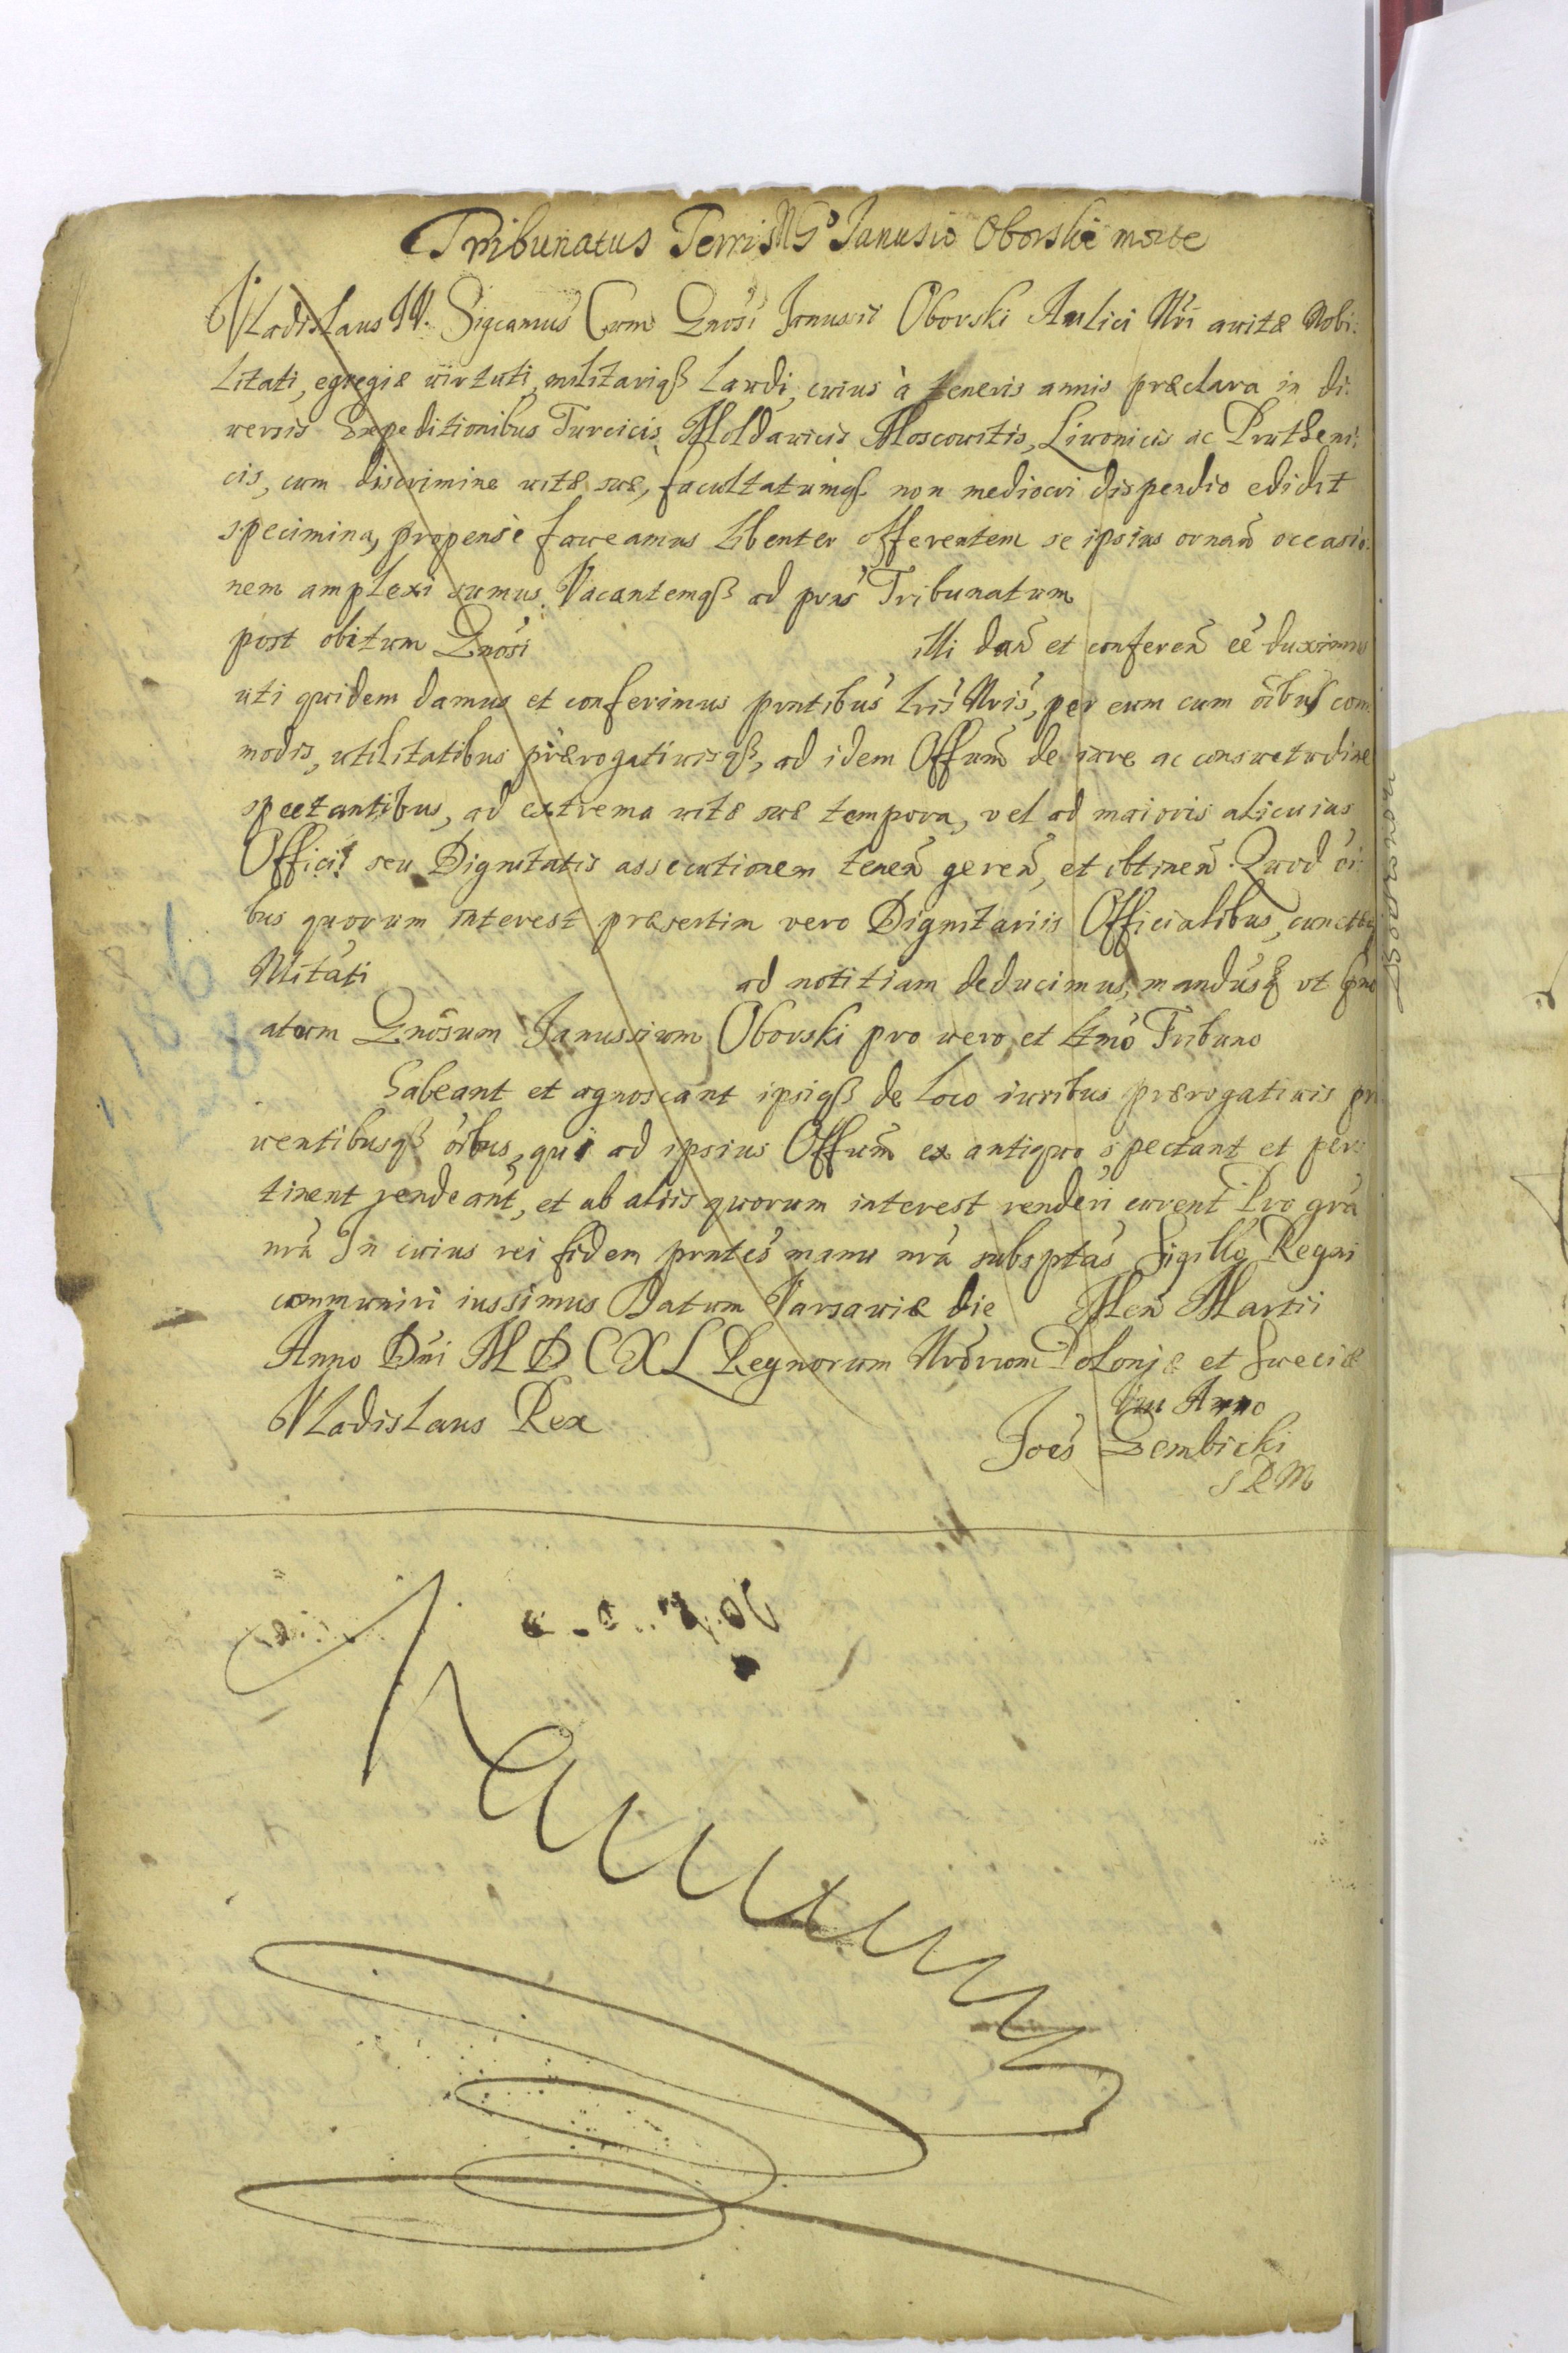 Tribunatus Terris Mgo Janusio Oborski morte
Vladislaus IV. Sigcamus Cum Gnosi Janussii Oborski Aulici Nri auitæ Nobi:
litati, egregiæ uirtuti, militariqß laudi, cuius à teneris annis præclara in di:
uersis Expeditionibus Turcicis, Moldauicis Moscouitis, Liuonicis ac Prutheni:
cis, cum discrimine uitæ suæ, facultatumqß non mediocri dispendio edidit
specimina, propense faueamus libenter offerentem se ipsius ornan̄ occasio:
nem amplexi sumus. Vacantemqß ad prns Tribunatum
post obitum Gnosi illi dan̄ et conferen̄ eē duximus
uti quidem damus et conferimus prntibus lris Nris, per eum cum oībus com
modis, utilitatibus prærogatiuisqß, ad idem Offum̄ de iure ac consuetudine
spectantibus, ad extrema uitæ suæ tempora, vel ad maioris alicuius
Officii seu Dignitatis assecutionem tenen̄ geren̄, et obtinen̄. Quod oī:
bus quorum interest præsertim vero Dignitariis Officialibus, cunctæq
Nitati ad notitiam deducimus, mandusq ut
atum Gnosum Janussium Oborski pro uero et ltmo Tribuno
habeant et agnoscant ipsiqß de loco iuribus prærogatiuis pro
uentibusqß oībus, qui ad ipsius Offum̄ ex antiquo spectant et per:
tinent rendeant, et ab aliis quorum interest renderi curent Pro gra
nra In cuius rei fidem prntes manu nra subsptas Sigillo Regni
communiri iussimus Datum Varsauiæ die Men Martii
Anno Dni MDCXL Regnorum Nrorum Poloniæ et Sueciæ
Vladislaus Rex
VIII Anno
Joes Gembicki
SRM